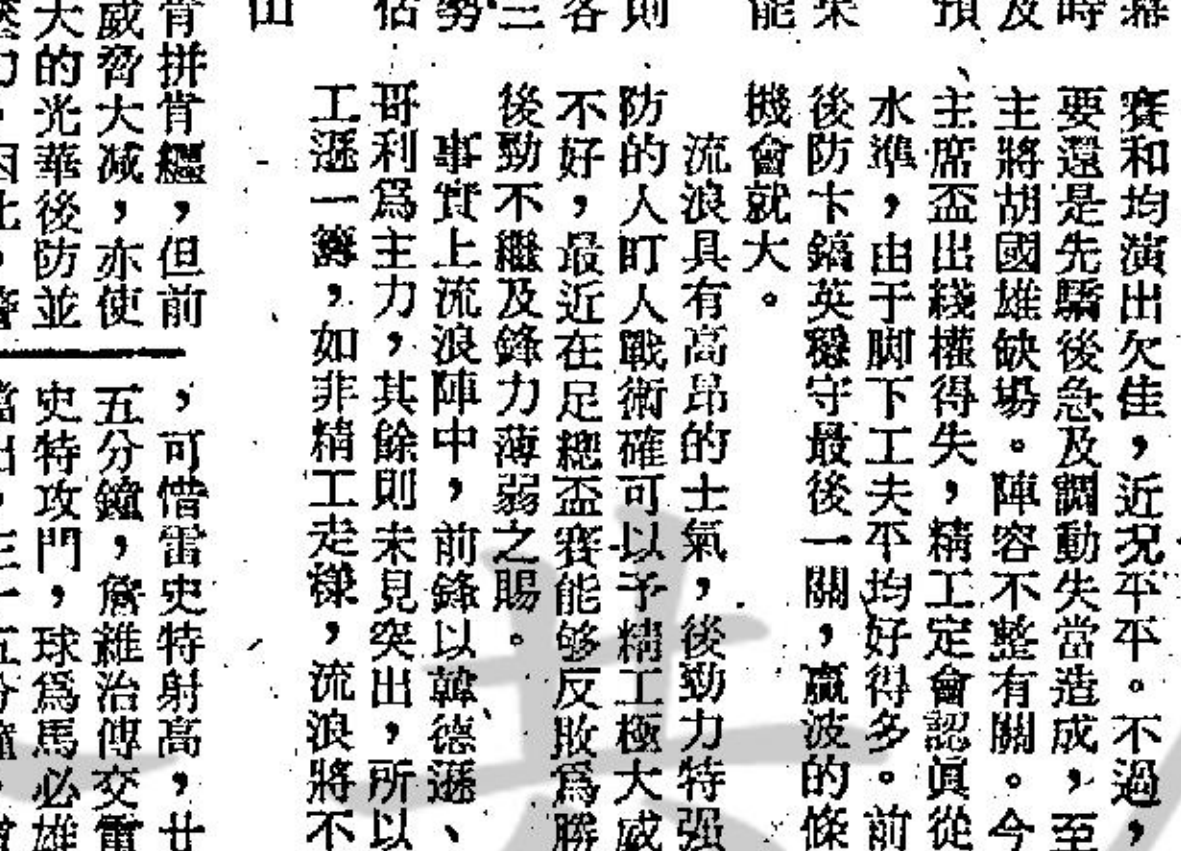 幕
時
及
預
果
能
則
客
三
勢
估
山
賽和均演出欠佳，近況平平。不過，
要還是先驕後急及調動失當造成，至
主將胡國雄缺場。陣容不整有關。今
主席盃出綫權得失，精工定會認眞從
水準，由于脚下工夫平均好得多。前
後防卡鎬英穩守最後一關，贏波的條
機會就大。
流浪具有高昂的士氣，後勁力特强
防的人盯人戰術確可以予精工極大威
不好，最近在足總盃賽能够反敗爲勝
後勁不繼及鋒力薄弱之賜。
事實上流浪陣中，前鋒以韓德遜、
哥利爲主力，其餘則未見突出，所以
工遜一籌，如非精工走樣，流浪將不
肯拼肯纒，但前
威脅大减，亦使
大的光華後防並
力，因此，
，可惜雷史特射高，廿
五分鐘，詹維治傳交雷
史特攻門，球爲馬必雄